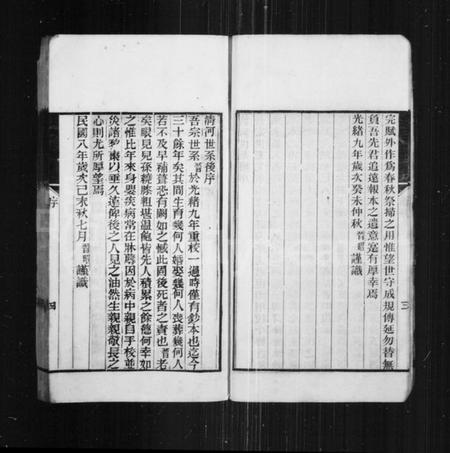 完賦外作爲春秋祭掃之用惟望世守成規傳延勿替無
負吾先君追遠報本之遺意寔有厚幸焉
光緒九年歲次癸未仲秋晉昭謹識
三
清河世系後序
吾宗世系晉昭於光緒九年重校一過時僅有鈔本也迄今
三十餘年矣其間生育幾何人婚娶幾何人喪葬幾何人
若不及早補葺恐有闕如之憾此固後死者之責也晉昭老
矣眼見兒孫繞膝粗堪溫飽皆先人積累之餘德何幸如
之惟比年來身嬰疾病常在牀蓐因於病中親自手校並
災諸棃棗以垂久遠俾後之人見之油然生親親敬長之
心則尤所厚望焉
民國八年歲次己未秋七月晉昭謹識
序
四